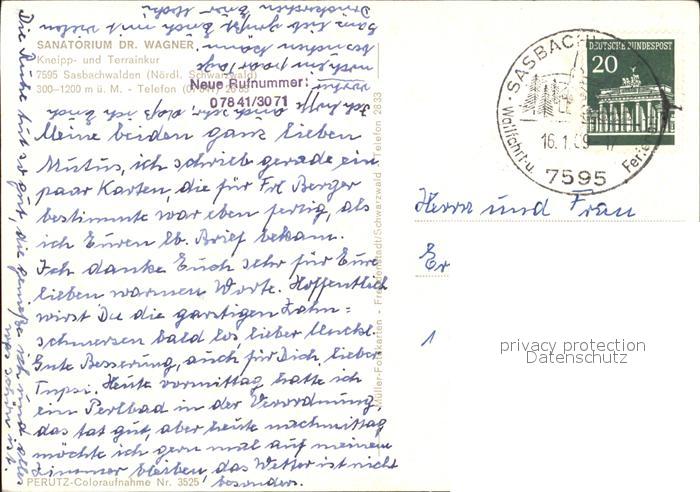 SANATORIUM DR. WAGNER
Kneipp- und Terrainkur
7595 Sasbachwalden (Nördl. Schwarzwald)
300-1200 m ü. M. - Telefon
Neue Rufnummer:
07841/3071
Meine beiden ganz lieben
Mutus, ich schrieb gerade ein
paar Karten, die für Frl Berger
bestimmte war eben fertig, als
ich Euren lb. Brief bekam.
Ich danke Euch sehr für Eure
lieben warmen Worte. Hoffentlich
wirst Du die garstigen Zahn=
schmerzen bald los, lieber
Gute Besserung, auch für Dich, lieber
Tupsi. Heute vormittag hatte ich
ein Perlbad in der Verordnung,
das tat gut, aber heute nachmittag
möchte ich gern mal auf meinem
Zimmer bleiben, das Wetter ist nicht
besonders.
Die Ruhe tut so gut, die genieße ich und alles
was schön ist.
PERUTZ-Coloraufnahme Nr. 3525
Müller-Fotokarten - Freudenstadt/Schwarzwald - Telefon 2833
SASBACHWALDEN
16.1.69
7595
Wallfahrt- u.
Ferien
DEUTSCHE BUNDESPOST
20
Herrn und Frau
Er
1
privacy protection
Datenschutz